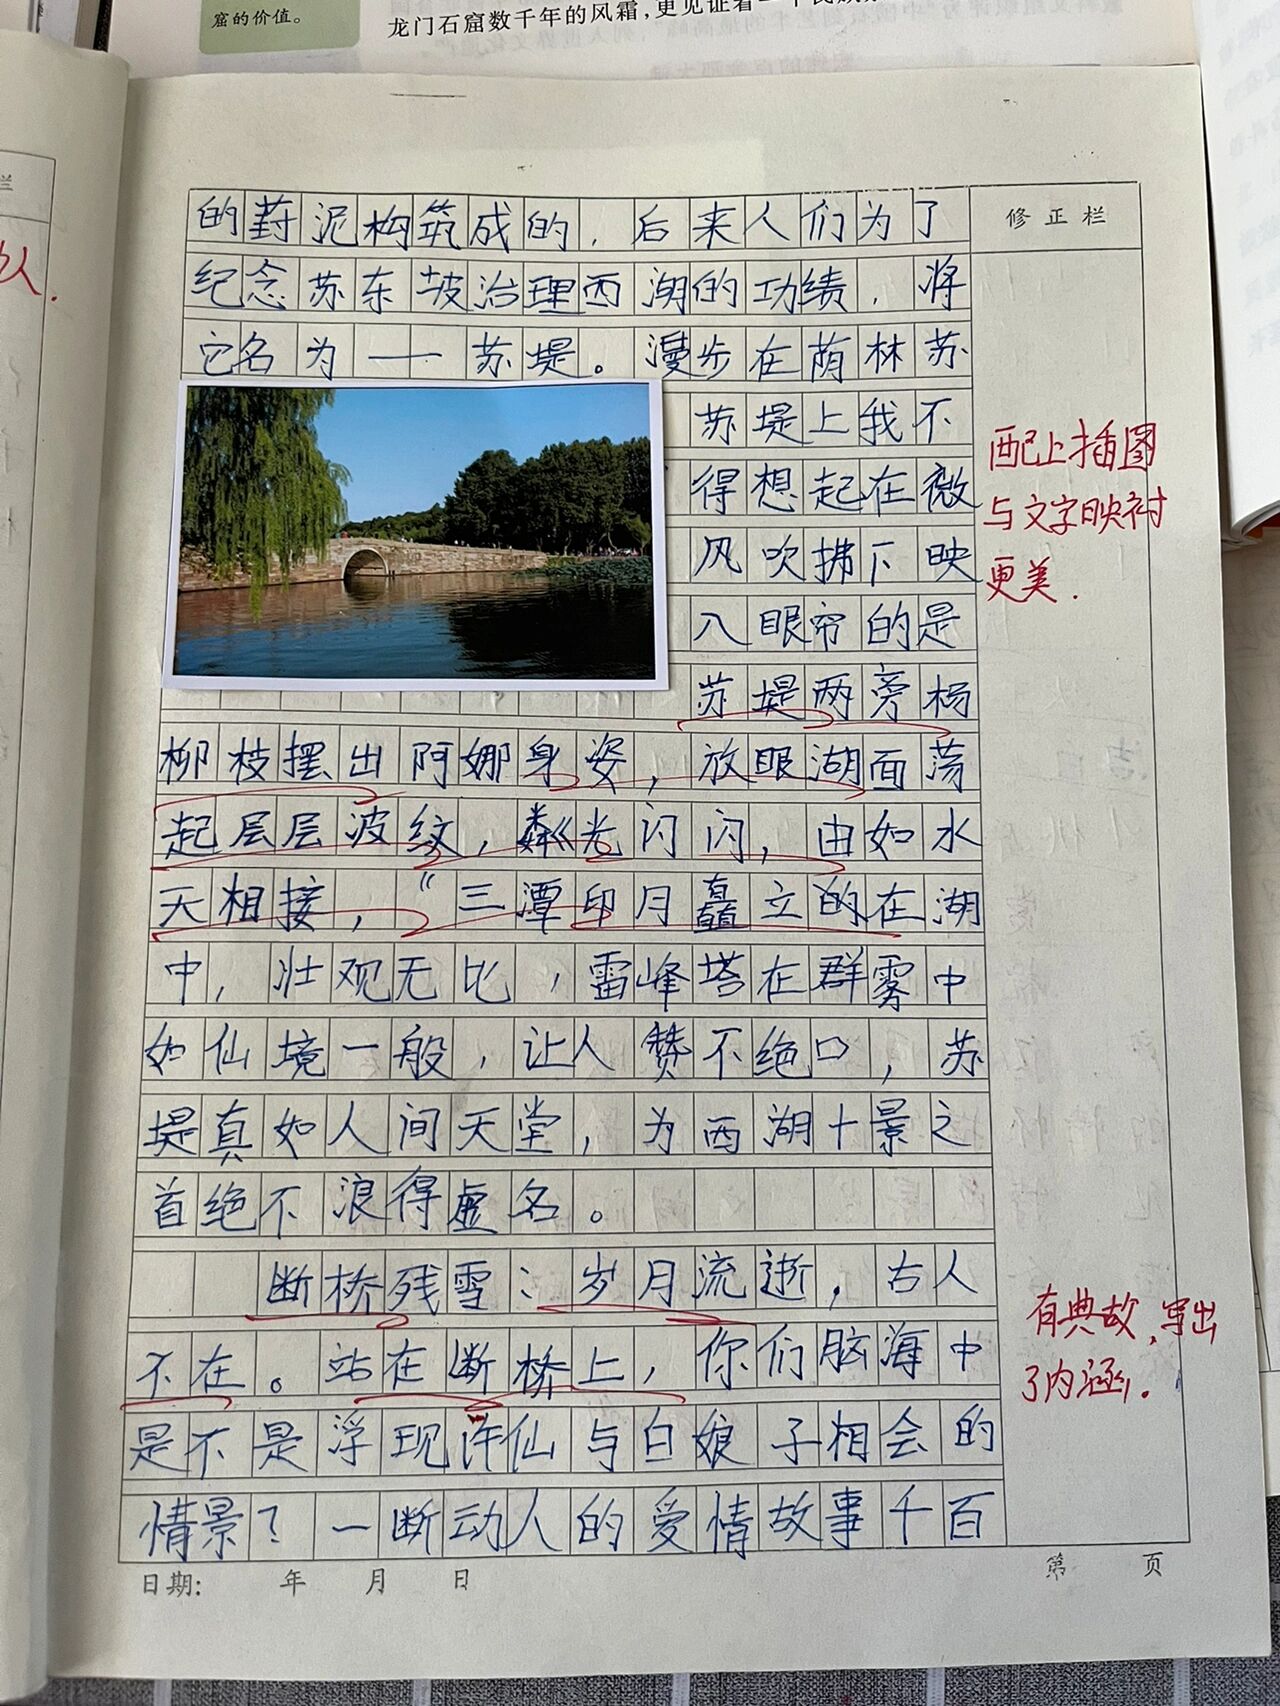 窟的价值。
龙门石窟数千年的风霜,更见证着一个民族
修正栏
的葑泥构筑成的,后来人们为了
纪念苏东坡治理西湖的功绩,将
它名为——苏堤。漫步在荫林苏
苏堤上我不
得想起在微
风吹拂下映
入眼帘的是
苏堤两旁杨
柳枝摆出阿娜身姿,放眼湖面荡
起层层波纹,粼光闪闪,由如水
天相接,“三潭印月矗立的在湖
中,壮观无比,雷峰塔在群雾中
如仙境一般,让人赞不绝口,苏
堤真如人间天堂,为西湖十景之
首绝不浪得虚名。
断桥残雪:岁月流逝,古人
不在。站在断桥上,你们脑海中
是不是浮现许仙与白娘子相会的
情景?一断动人的爱情故事千百
配上插图
与文字映衬
更美.
有典故,写出
了内涵.
日期: 年 月 日
第 页